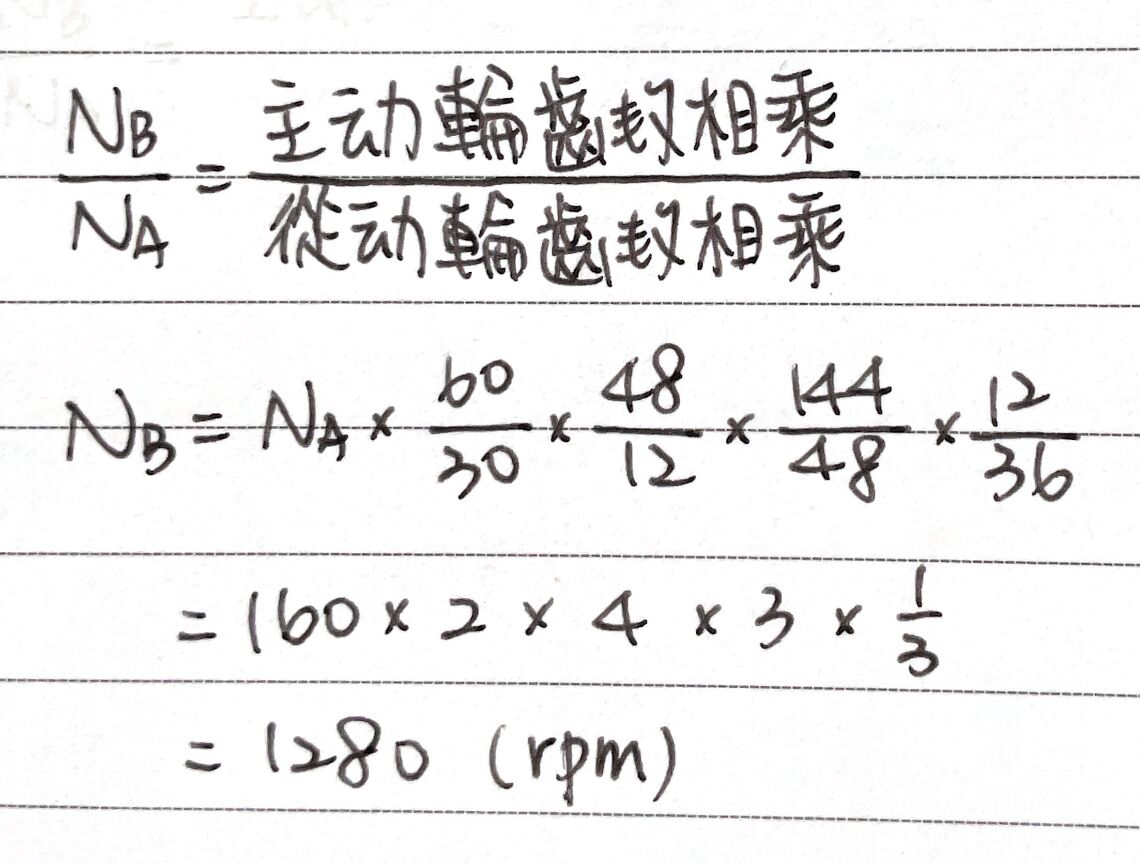 N_B/N_A = 主动輪齒数相乘/從动輪齒数相乘
N_B = N_A × 60/30 × 48/12 × 144/48 × 12/36
= 160 × 2 × 4 × 3 × 1/3
= 1280 (rpm)